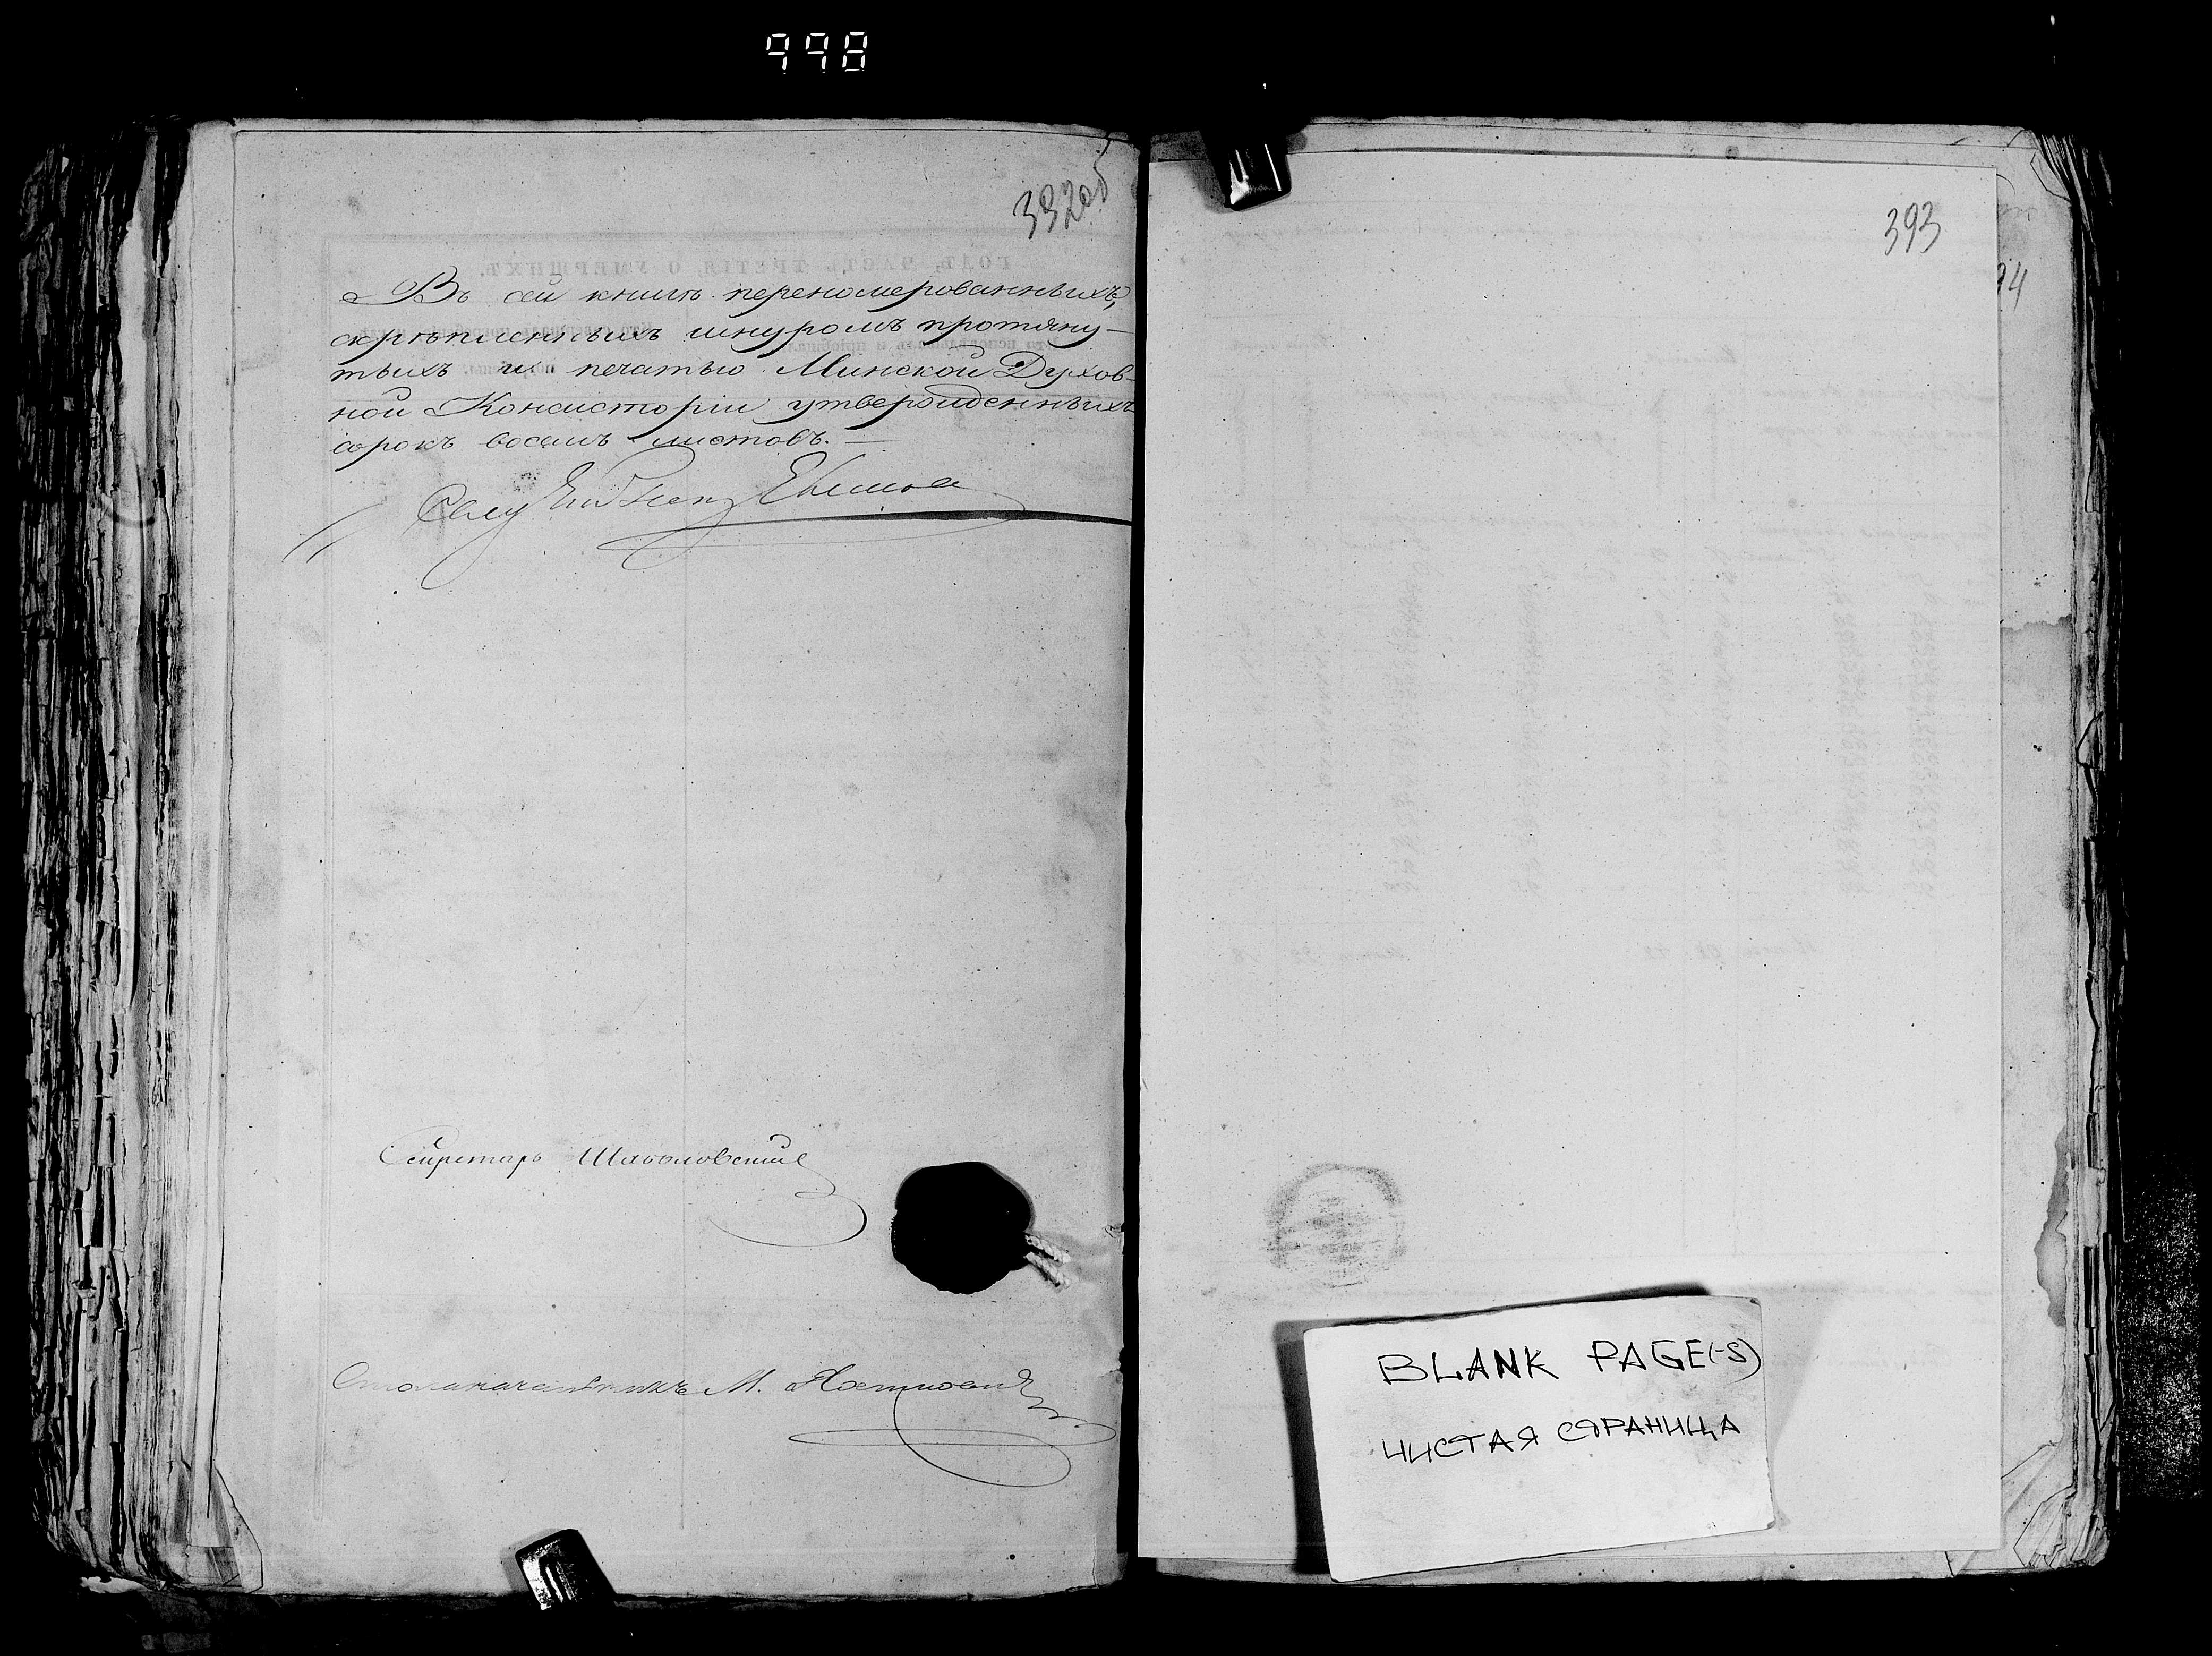 998
392 об
Въ сей книгѣ перенумерованныхъ,
скрѣпленныхъ шнуромъ протяну-
тыхъ и печатью Минской Духов-
ной Консисторіи утвержденныхъ
сорокъ восемь листовъ. —
Секретарь
Столоначальникъ М.
393
94
BLANK PAGE(-S)
ЧИСТАЯ СТРАНИЦА